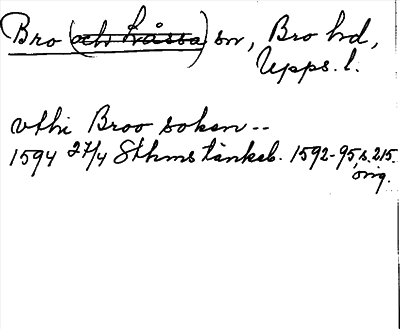 Bro (och Låssa) sn, Bro hd,
Upps. l.
vthi Broo soken --
1594 27/4 Sthms tänkeb. 1592-95, s. 215.
orig.